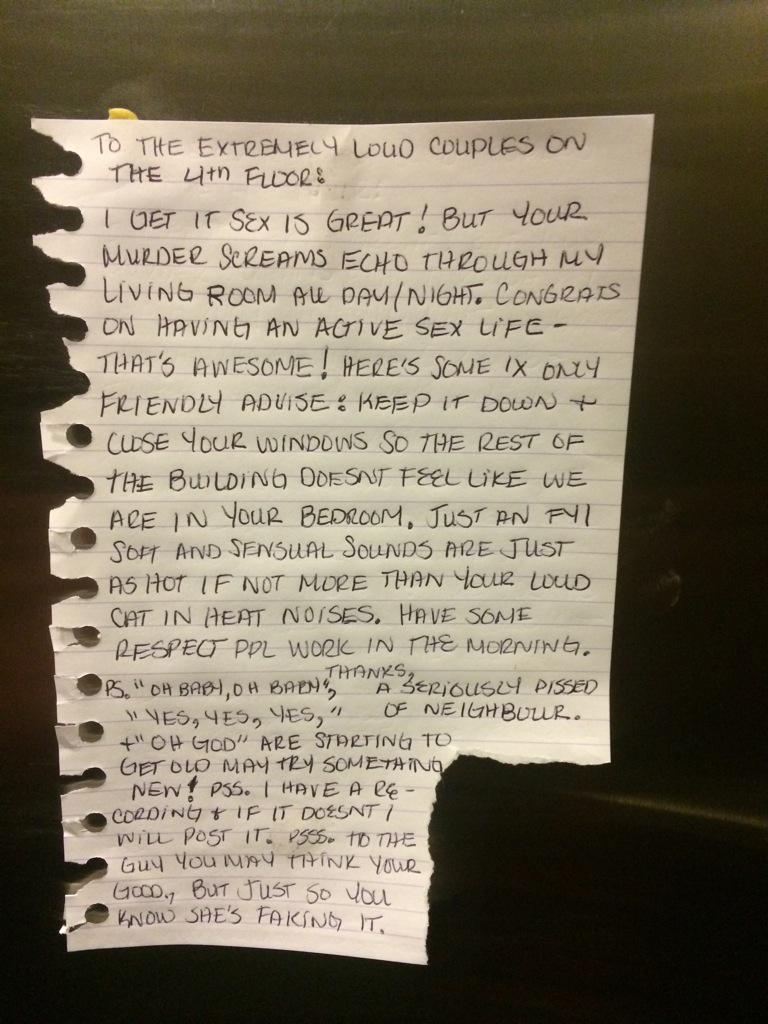 TO THE EXTREMELY LOUD COUPLES ON
THE 4TH FLOOR:
I GET IT SEX IS GREAT! BUT YOUR
MURDER SCREAMS ECHO THROUGH MY
LIVING ROOM ALL DAY/NIGHT. CONGRATS
ON HAVING AN ACTIVE SEX LIFE -
THAT'S AWESOME! HERE'S SOME 1X ONLY
FRIENDLY ADVISE: KEEP IT DOWN +
CLOSE YOUR WINDOWS SO THE REST OF
THE BUILDING DOESNT FEEL LIKE WE
ARE IN YOUR BEDROOM. JUST AN FYI
SOFT AND SENSUAL SOUNDS ARE JUST
AS HOT IF NOT MORE THAN YOUR LOUD
CAT IN HEAT NOISES. HAVE SOME
RESPECT PPL WORK IN THE MORNING.
THANKS,
A SERIOUSLY PISSED
OF NEIGHBOUR.
PS. "OH BABY, OH BABY",
"YES, YES, YES,"
+ "OH GOD" ARE STARTING TO
GET OLD MAY TRY SOMETHING
NEW! PSS. I HAVE A RE-
CORDING + IF IT DOESNT I
WILL POST IT. PSSS. TO THE
GUY YOU MAY THINK YOUR
GOOD, BUT JUST SO YOU
KNOW SHE'S FAKING IT.